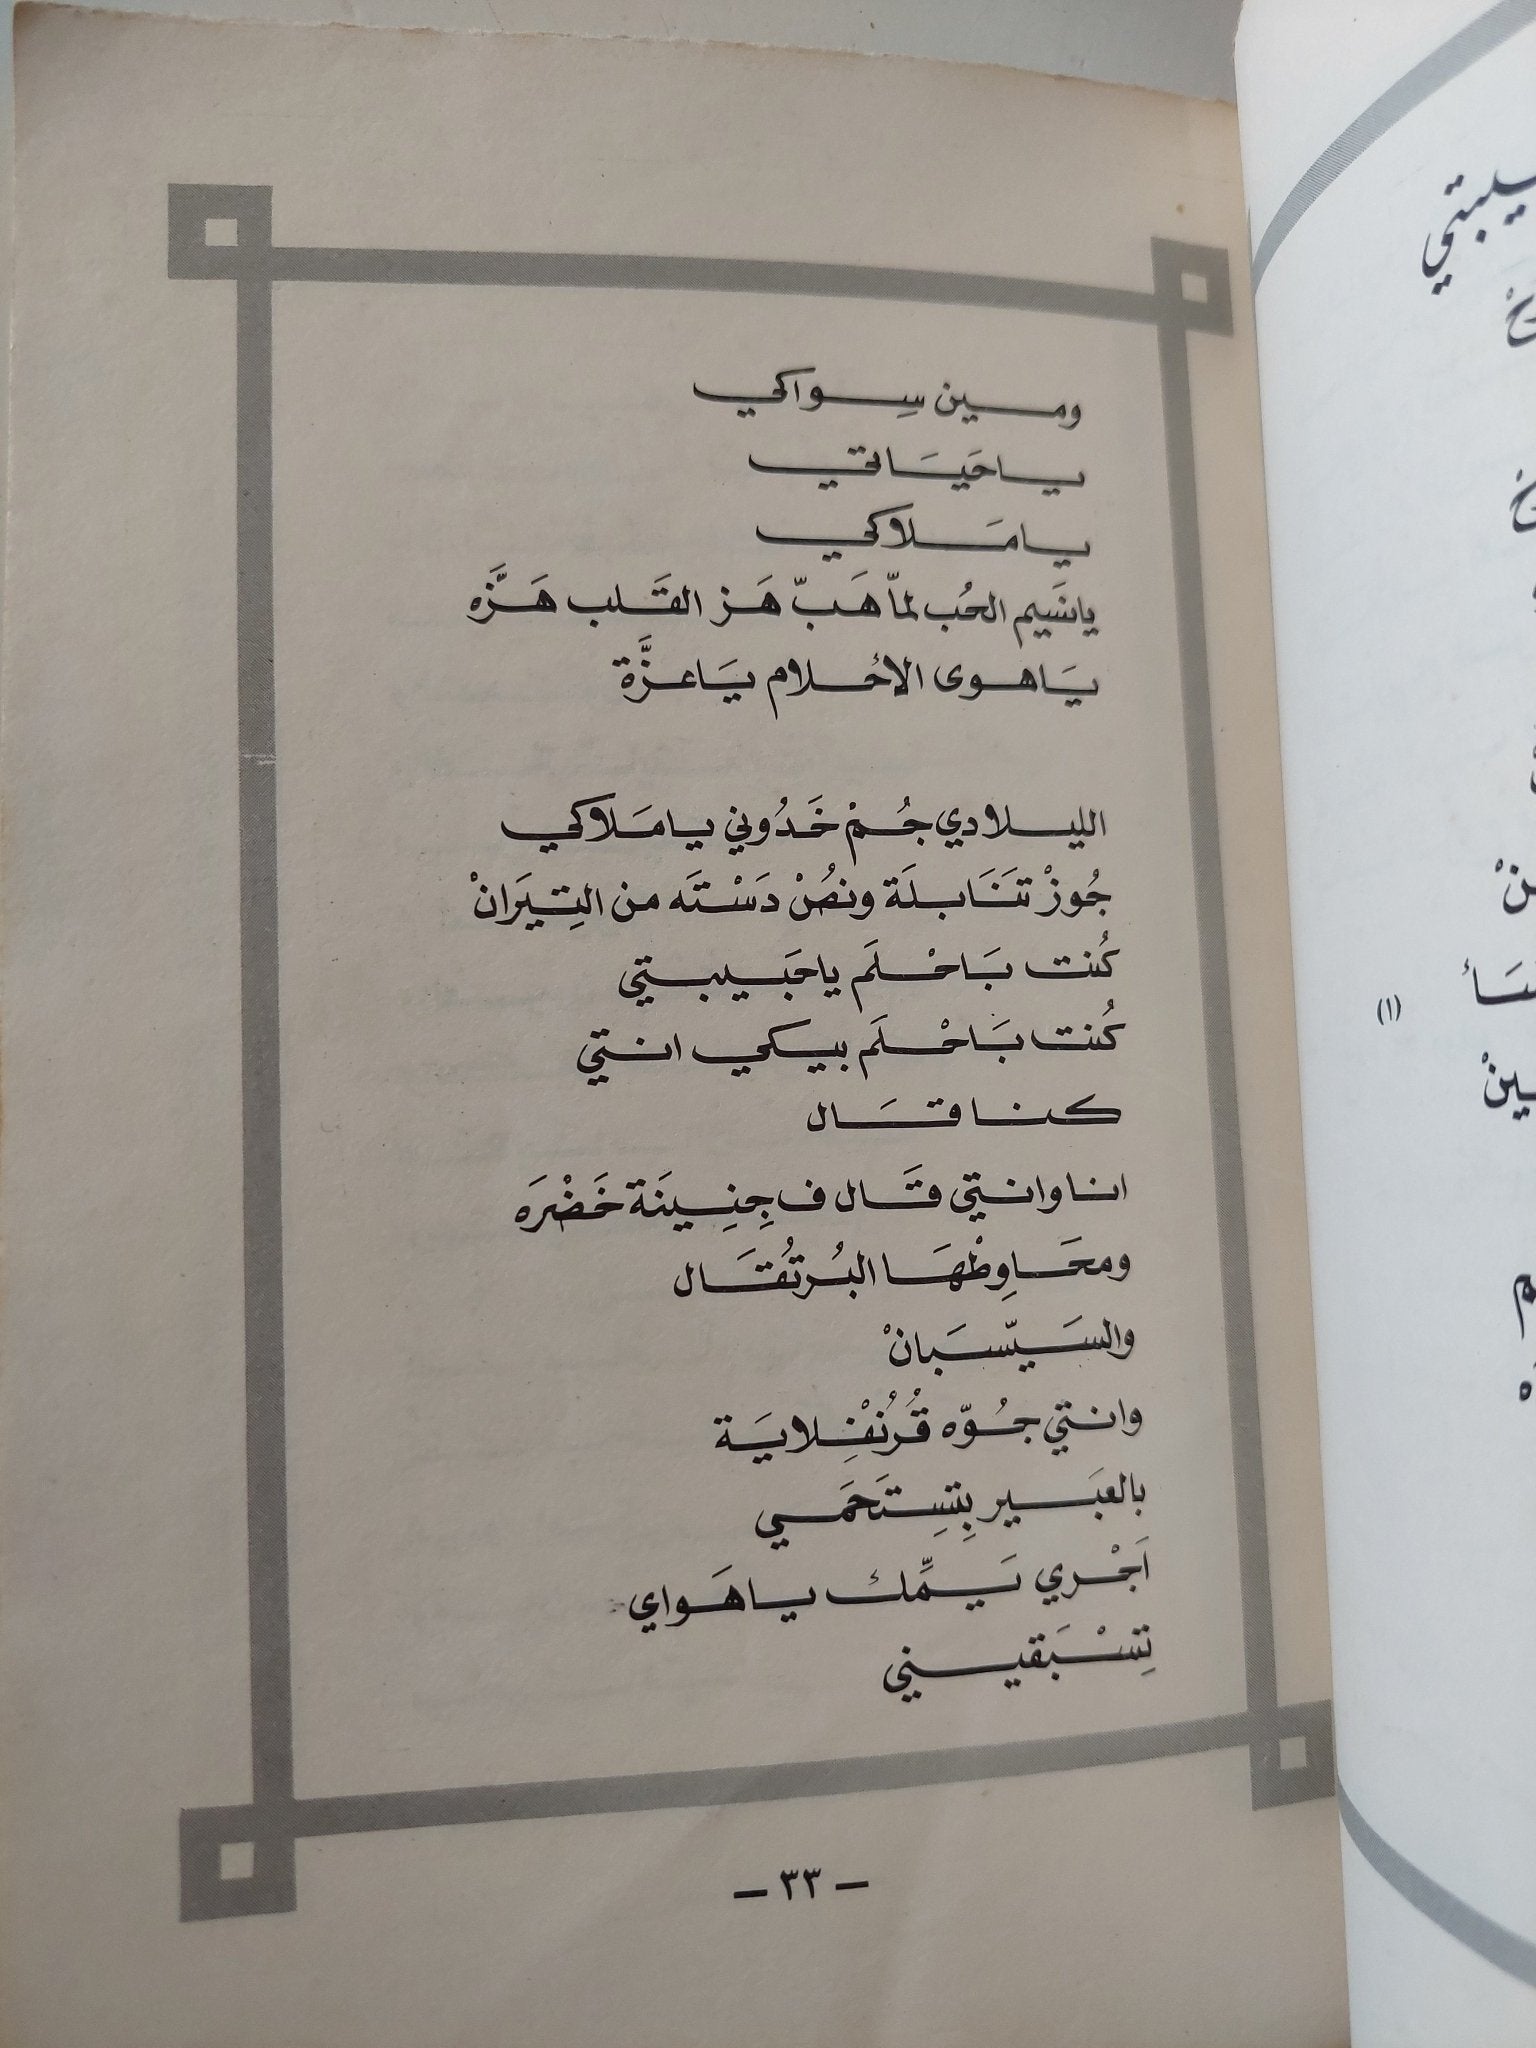 ومين سِواكي
ياحَيَاتي
يامَلاكي
يانَسيم الحُب لمّا هَبّ هَز القَلب هَزَّه
يَاهوى الأحلام يَاعزَّة
الليلادي جُمْ خَدُوني يامَلاكي
جُوزْ تنَابلَة ونصُ دَسْتَه من التِيرَانْ
كُنت بَاحْلَم ياحَبيبتي
كُنت بَاحْلَم بيكي انتي
كنا قَال
انا وانتي قَال ف جِنِينَة خَضْرَه
ومحَاوِطْهَا البُرتُقَال
والسَيسَبانْ
وانتي جُوّه قُرُنْفِلاية
بالعَبَير بِتسِتَحَمي
اَجْري يَمِّك ياهَواي
تِسْبَقيني
- ٣٣ -
(١)